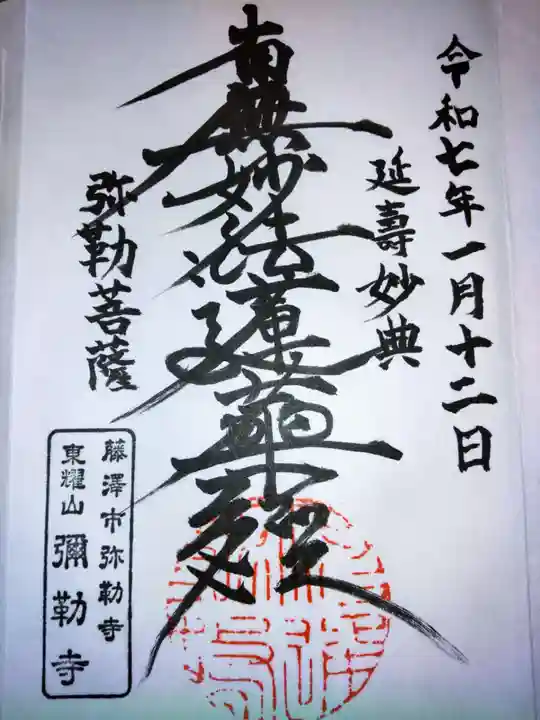 令和七年一月十二日
延壽妙典
南無妙法蓮華經
弥勒菩薩
藤澤市弥勒寺
東耀山
彌勒寺